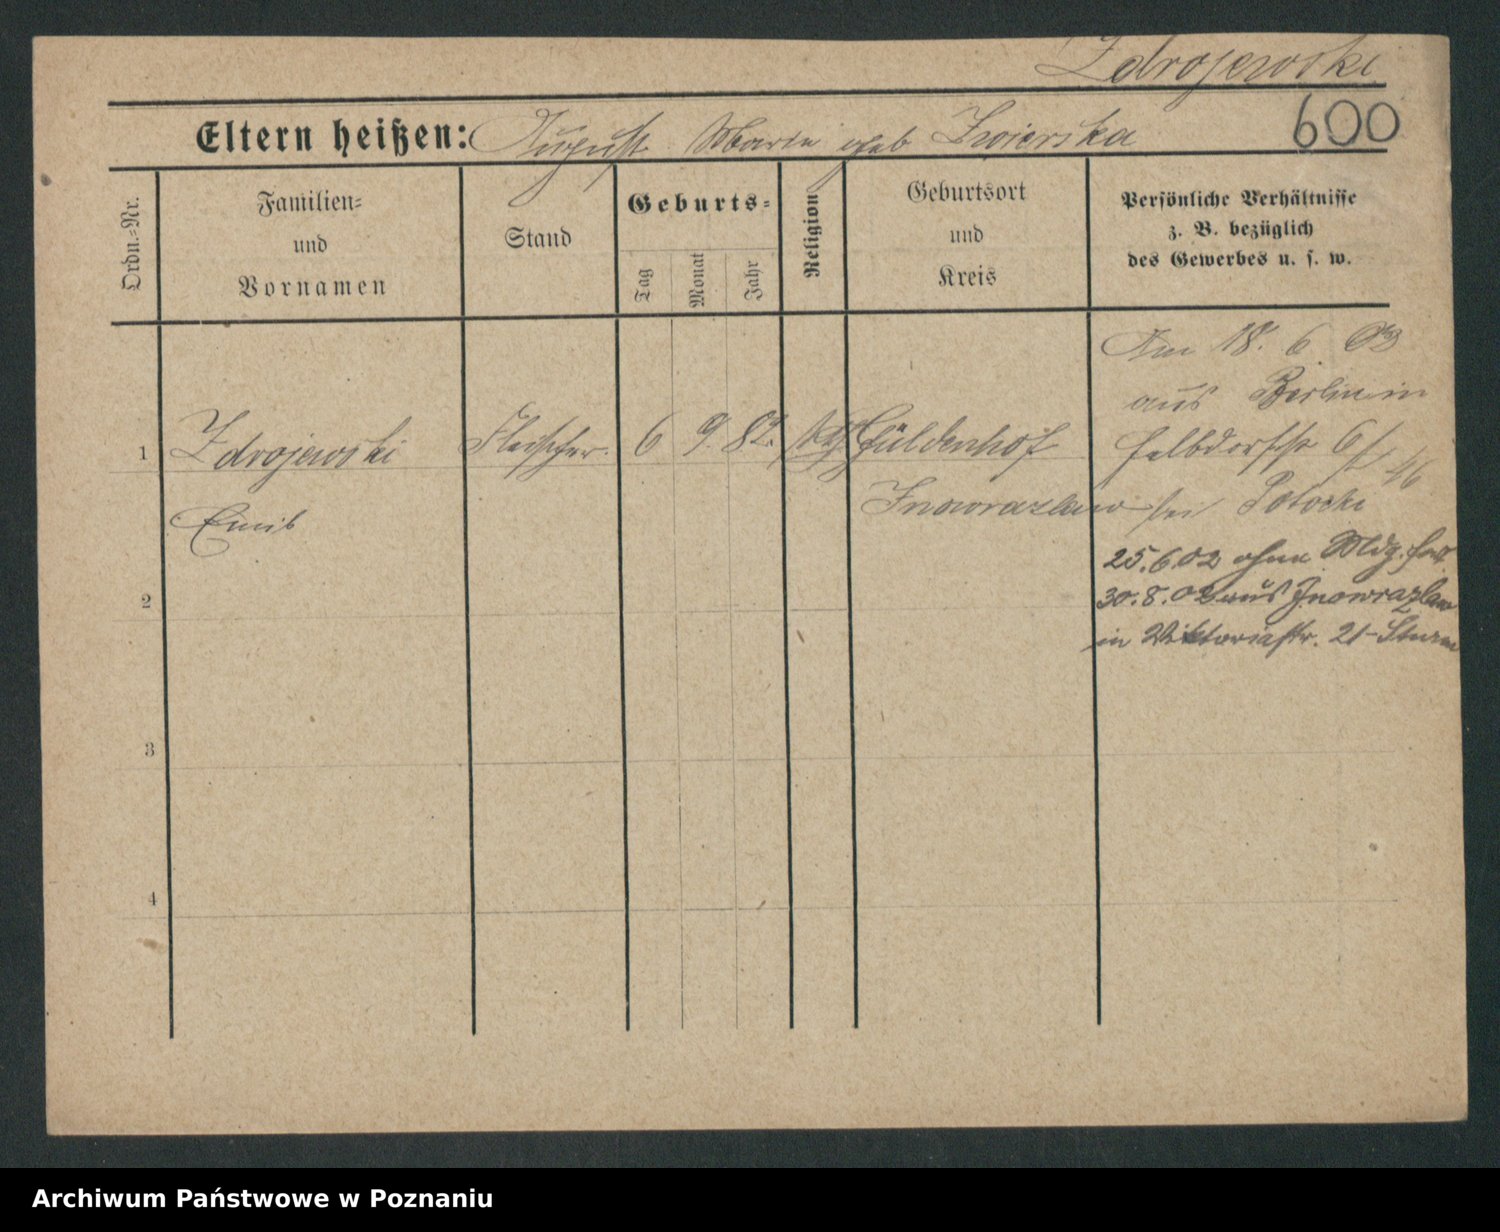 Zdrojewski
600
Eltern heißen: August Marie geb Zwierska
Ordn.=Nr.
Familien=
und
Vornamen
Stand
Geburts=
Tag
Monat
Jahr
Religion
Geburtsort
und
Kreis
Persönliche Verhältnisse
z. B. bezüglich
des Gewerbes u. s. w.
Am 18. 6. 02
aus Berlin in
1 Zdrojewski Fleischer. 6 9. 82. Güldenhof
Emil Inowrazlaw bei Potocki
25.6.02 ohne Mldg. fort
2 30.8.02 aus Inowrazlaw
in Viktoriastr. 21 - Sturm
3
4
Archiwum Państwowe w Poznaniu